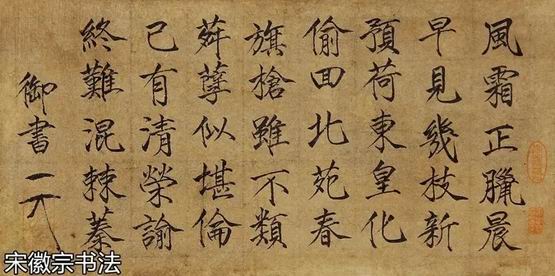 風霜正臘晨
早見幾枝新
預荷東皇化
偷回北苑春
旗槍雖不類
荈孽似堪倫
已有清榮諭
終難混棘蓁
御書
宋徽宗书法